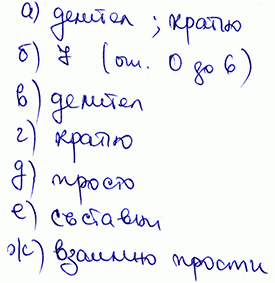 а) делител ; кратно
б) 7 (от 0 до 6)
в) делител
г) кратно
д) просто
е) съставни
ж) взаимно прости